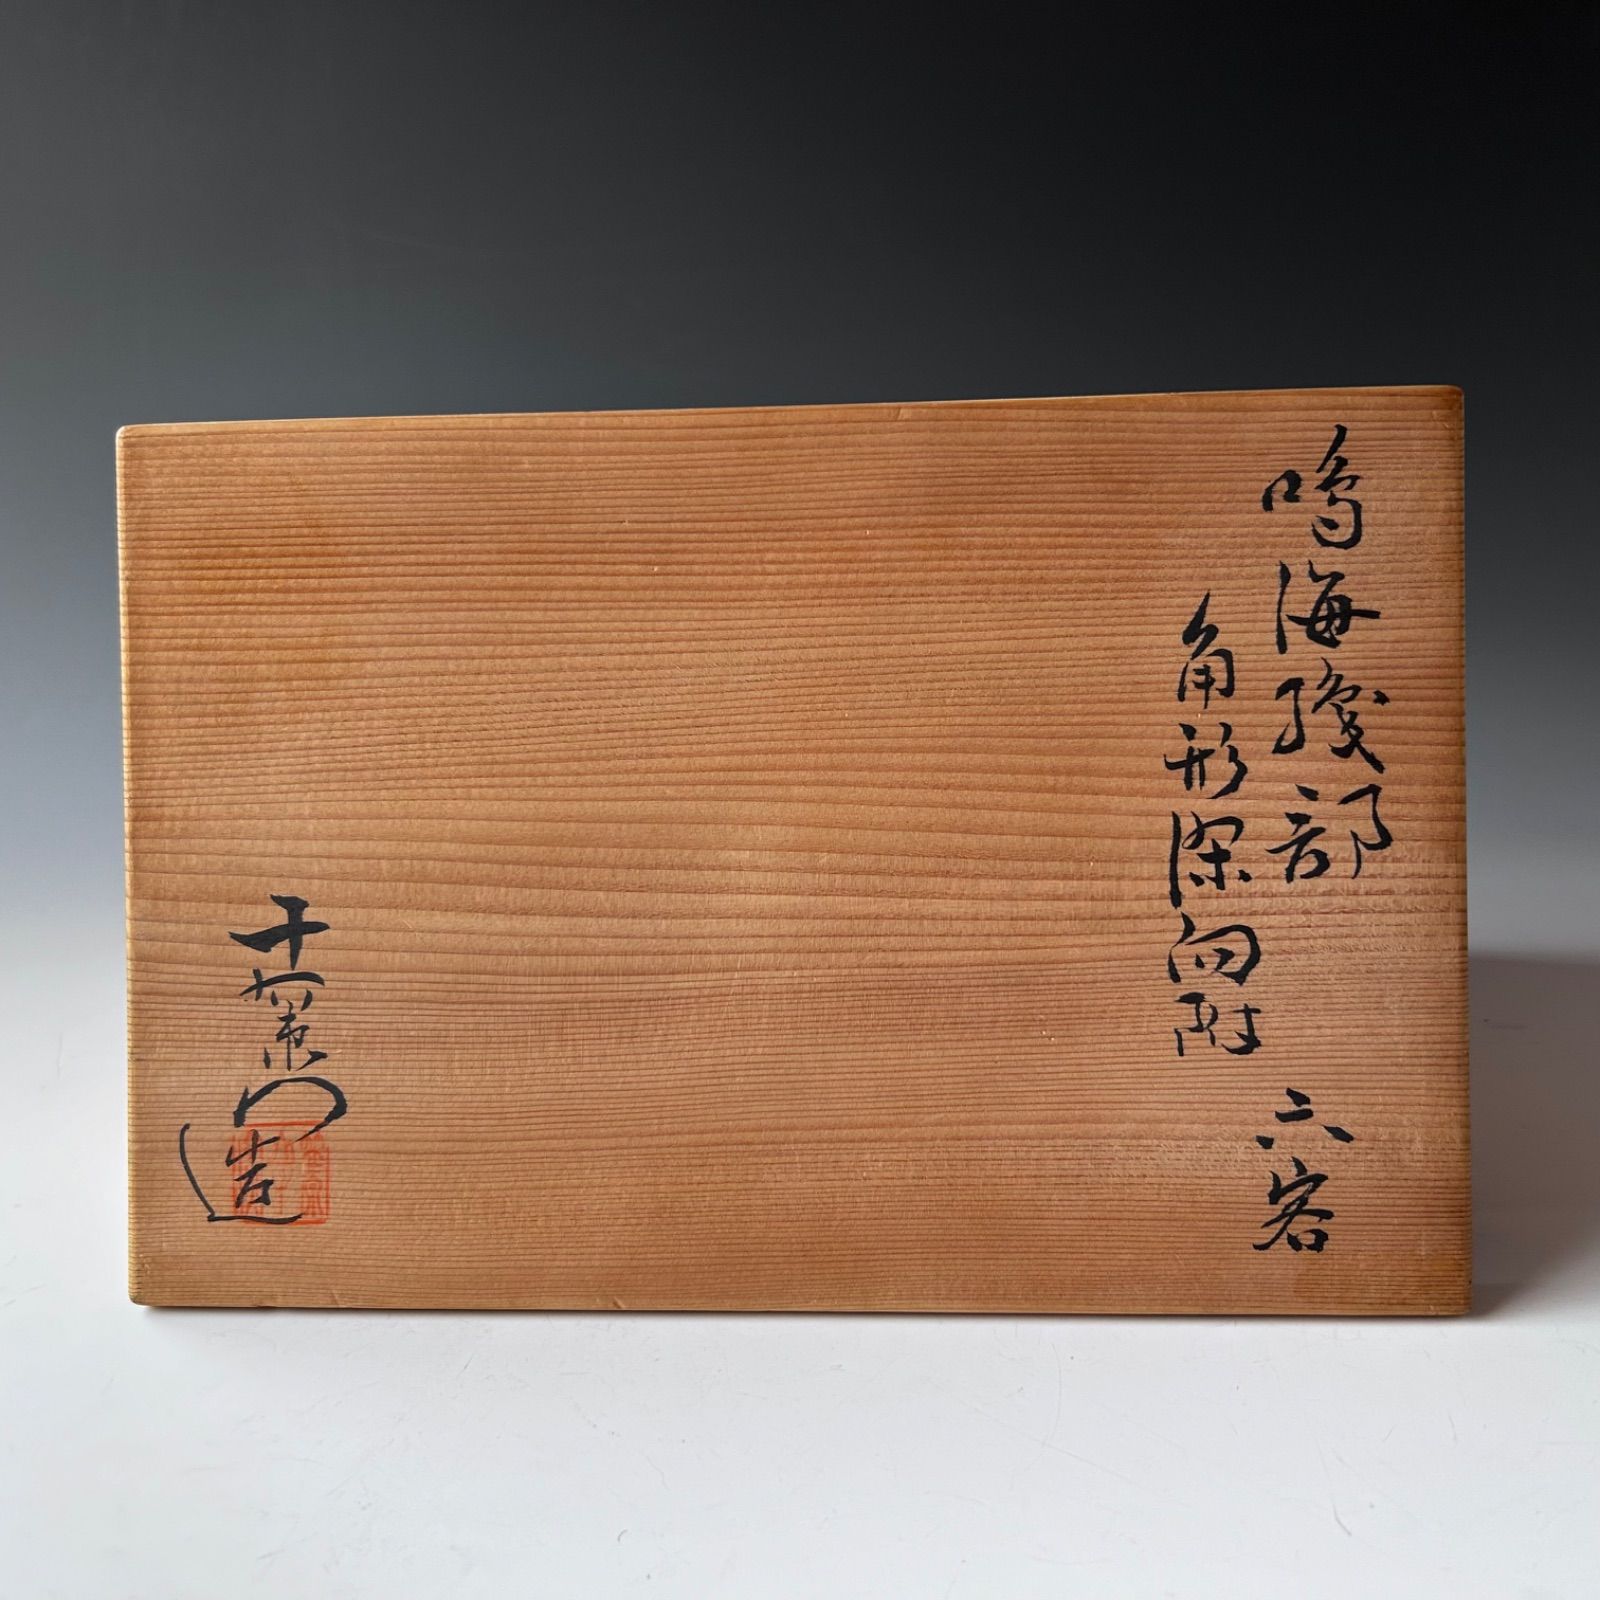 鳴海織部
角形深向附
六客
造